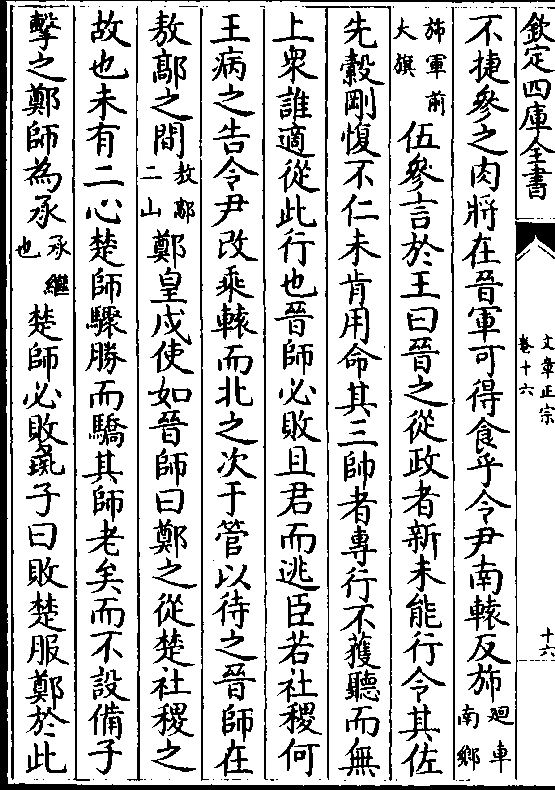 欽定四庫全書
文章正宗
卷十六
十六
不捷參之肉將在晉軍可得食乎令尹南轅反斾迴車南鄉
斾軍前大旗伍參言於王曰晉之從政者新未能行令其佐
先縠剛愎不仁未肯用命其三帥者專行不獲聽而無
上衆誰適從此行也晉師必敗且君而逃臣若社稷何
王病之告令尹改乘轅而北之次于管以待之晉師在
敖鄗之間敖鄗二山鄭皇戍使如晉師曰鄭之從楚社稷之
故也未有二心楚師驟勝而驕其師老矣而不設備子
擊之鄭師為承承繼也楚師必敗彘子曰敗楚服鄭於此